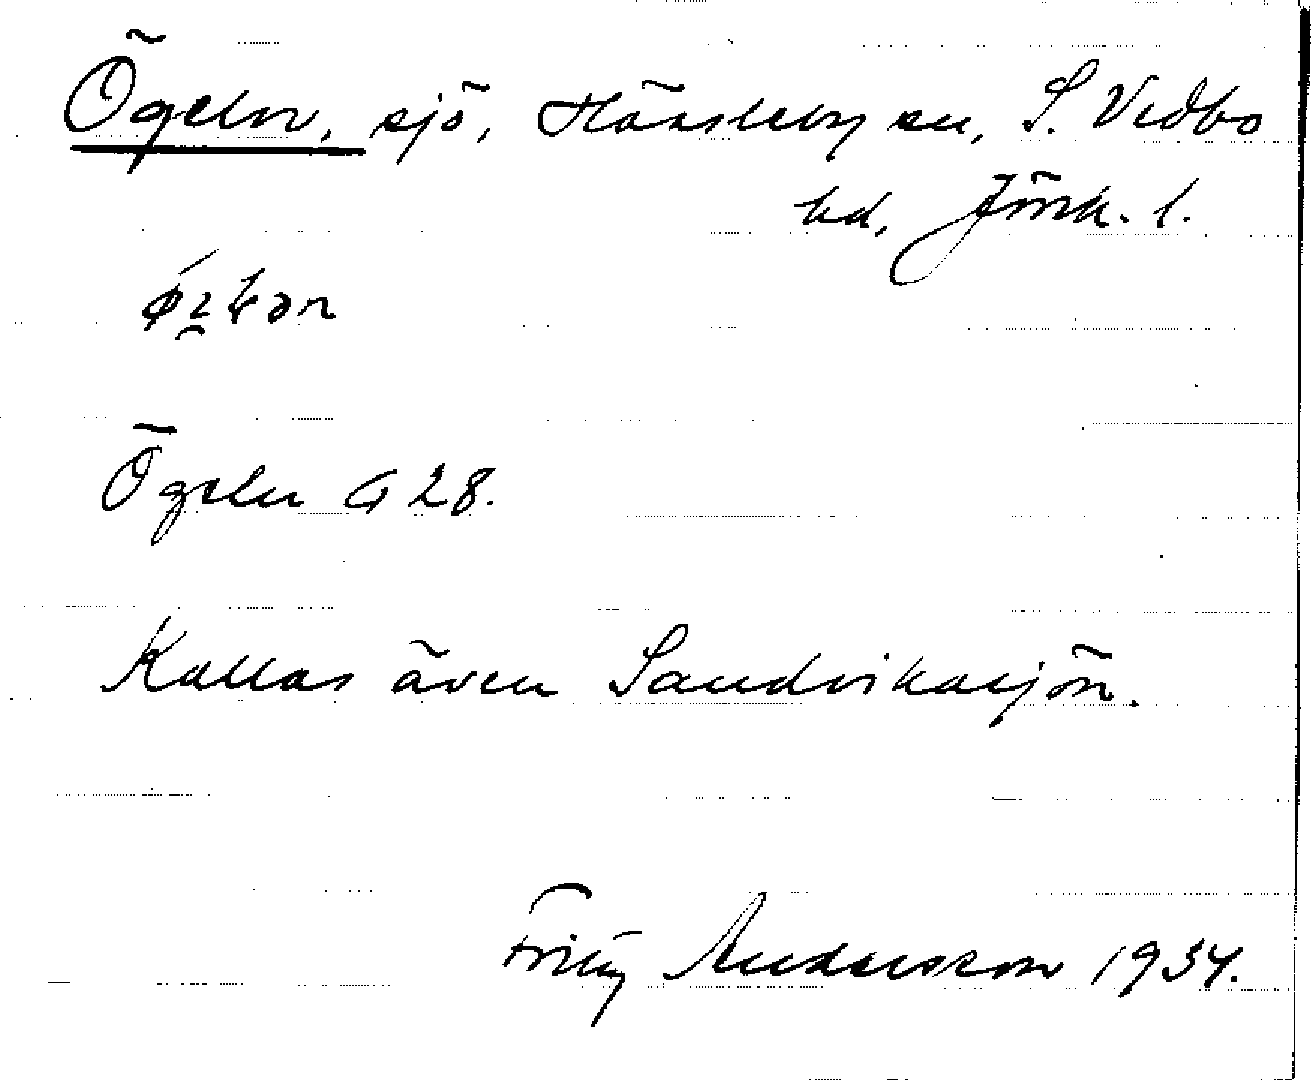 Ögeln, sjö, Hässleby sn, S. Vedbo
hd, Jönk. l.
Ögeln G 28.
Kallas även Sandvikasjön.
Fritz Andersson 1934.